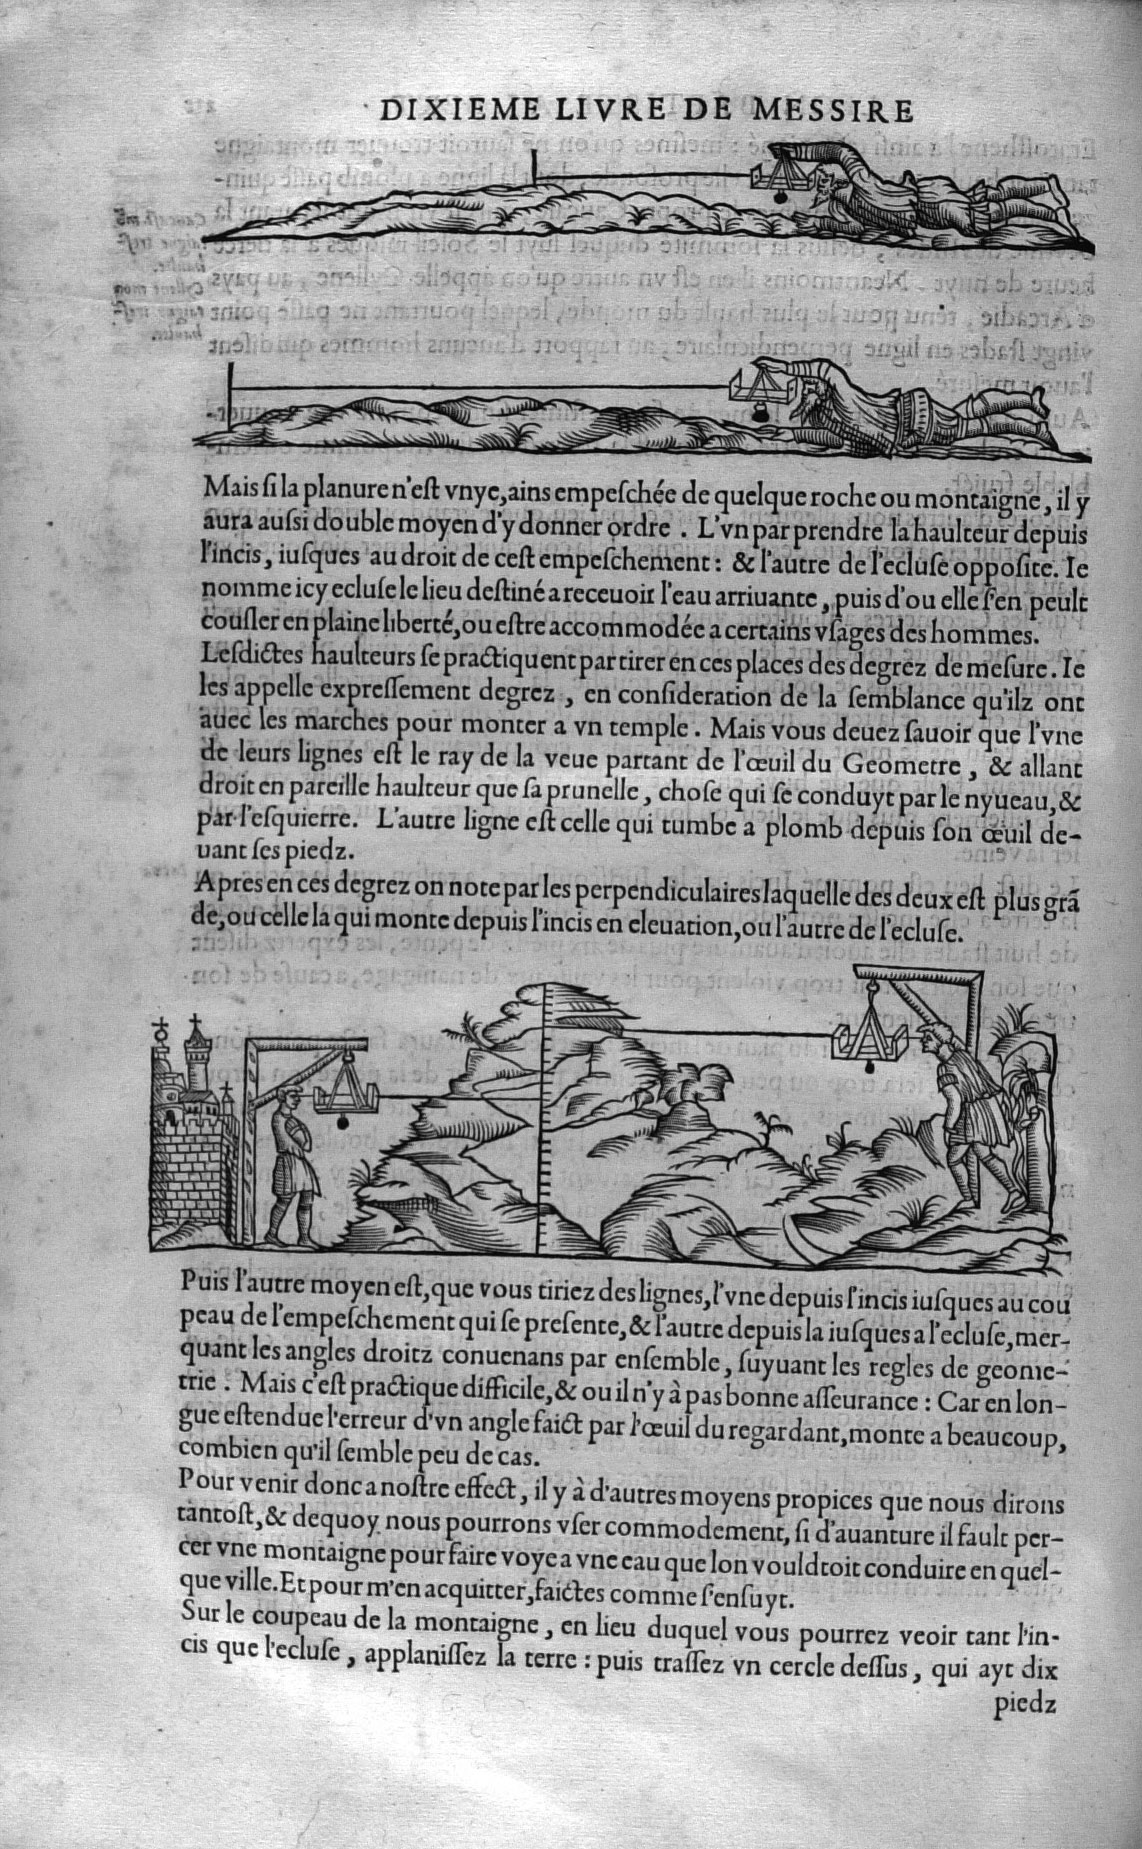 DIXIEME LIVRE DE MESSIRE
Mais si la planure n'est vnye, ains empeschée de quelque roche ou montaigne, il y
aura aussi double moyen d'y donner ordre. L'vn par prendre la haulteur depuis
l'incis, iusques au droit de cest empeschement: & l'autre de l'ecluse opposite. Ie
nomme icy ecluse le lieu destiné a receuoir l'eau arriuante, puis d'ou elle s'en peult
couller en plaine liberté, ou estre accommodée a certains vsages des hommes.
Lesdictes haulteurs se practiquent par tirer en ces places des degrez de mesure. Ie
les appelle expressement degrez, en consideration de la semblance qu'ilz ont
auec les marches pour monter a vn temple. Mais vous deuez sauoir que l'vne
de leurs lignes est le ray de la veue partant de l'œuil du Geometre, & allant
droit en pareille haulteur que sa prunelle, chose qui se conduyt par le nyueau, &
par l'esquierre. L'autre ligne est celle qui tumbe a plomb depuis son œuil de-
uant ses piedz.
Apres en ces degrez on note par les perpendiculaires laquelle des deux est plus grã
de, ou celle la qui monte depuis l'incis en eleuation, ou l'autre de l'ecluse.
Puis l'autre moyen est, que vous tiriez des lignes, l'vne depuis l'incis iusques au cou
peau de l'empeschement qui se presente, & l'autre depuis la iusques a l'ecluse, mer-
quant les angles droitz conuenans par ensemble, suyuant les regles de geome-
trie. Mais c'est practique difficile, & ou il n'y à pas bonne asseurance: Car en lon-
gue estendue l'erreur d'vn angle faict par l'œuil du regardant, monte a beaucoup,
combien qu'il semble peu de cas.
Pour venir donc a nostre effect, il y à d'autres moyens propices que nous dirons
tantost, & dequoy nous pourrons vser commodement, si d'auanture il fault per-
cer vne montaigne pour faire voye a vne eau que lon vouldroit conduire en quel-
que ville. Et pour m'en acquitter, faictes comme s'ensuyt.
Sur le coupeau de la montaigne, en lieu duquel vous pourrez veoir tant l'in-
cis que l'ecluse, applanissez la terre: puis trassez vn cercle dessus, qui ayt dix
piedz